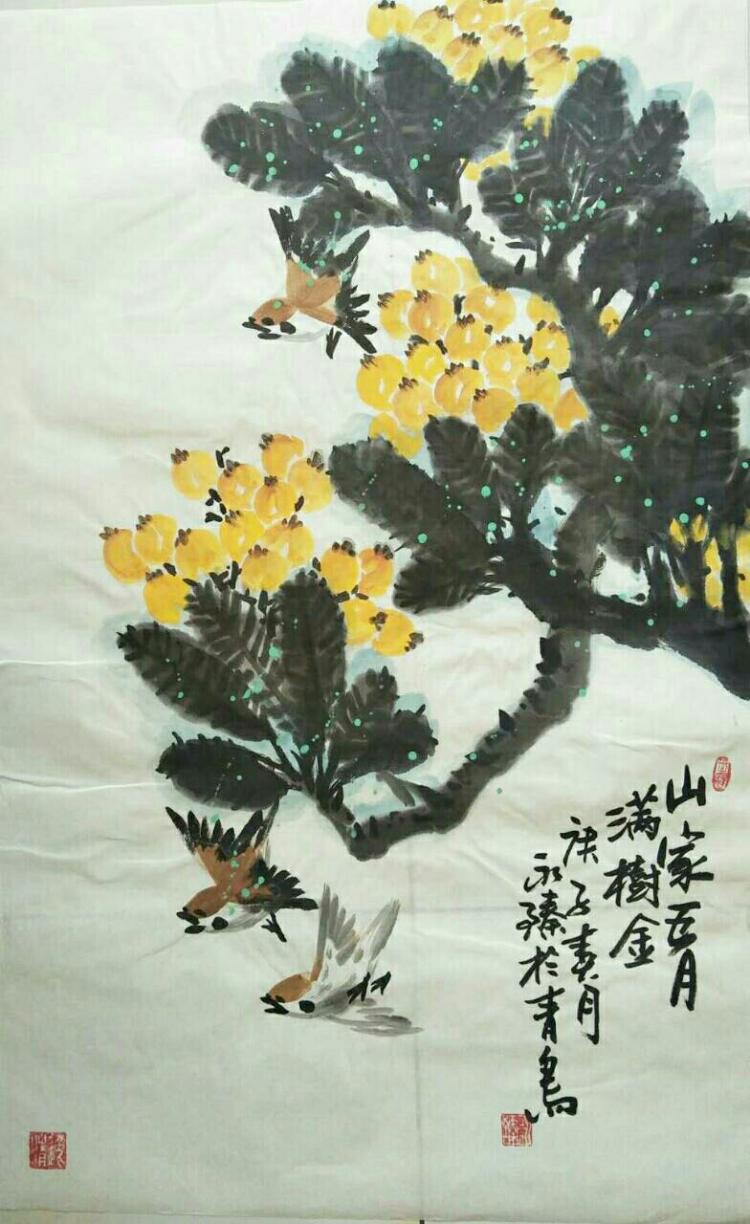 山家五月
满樹金
庚子春月
永臻於青島